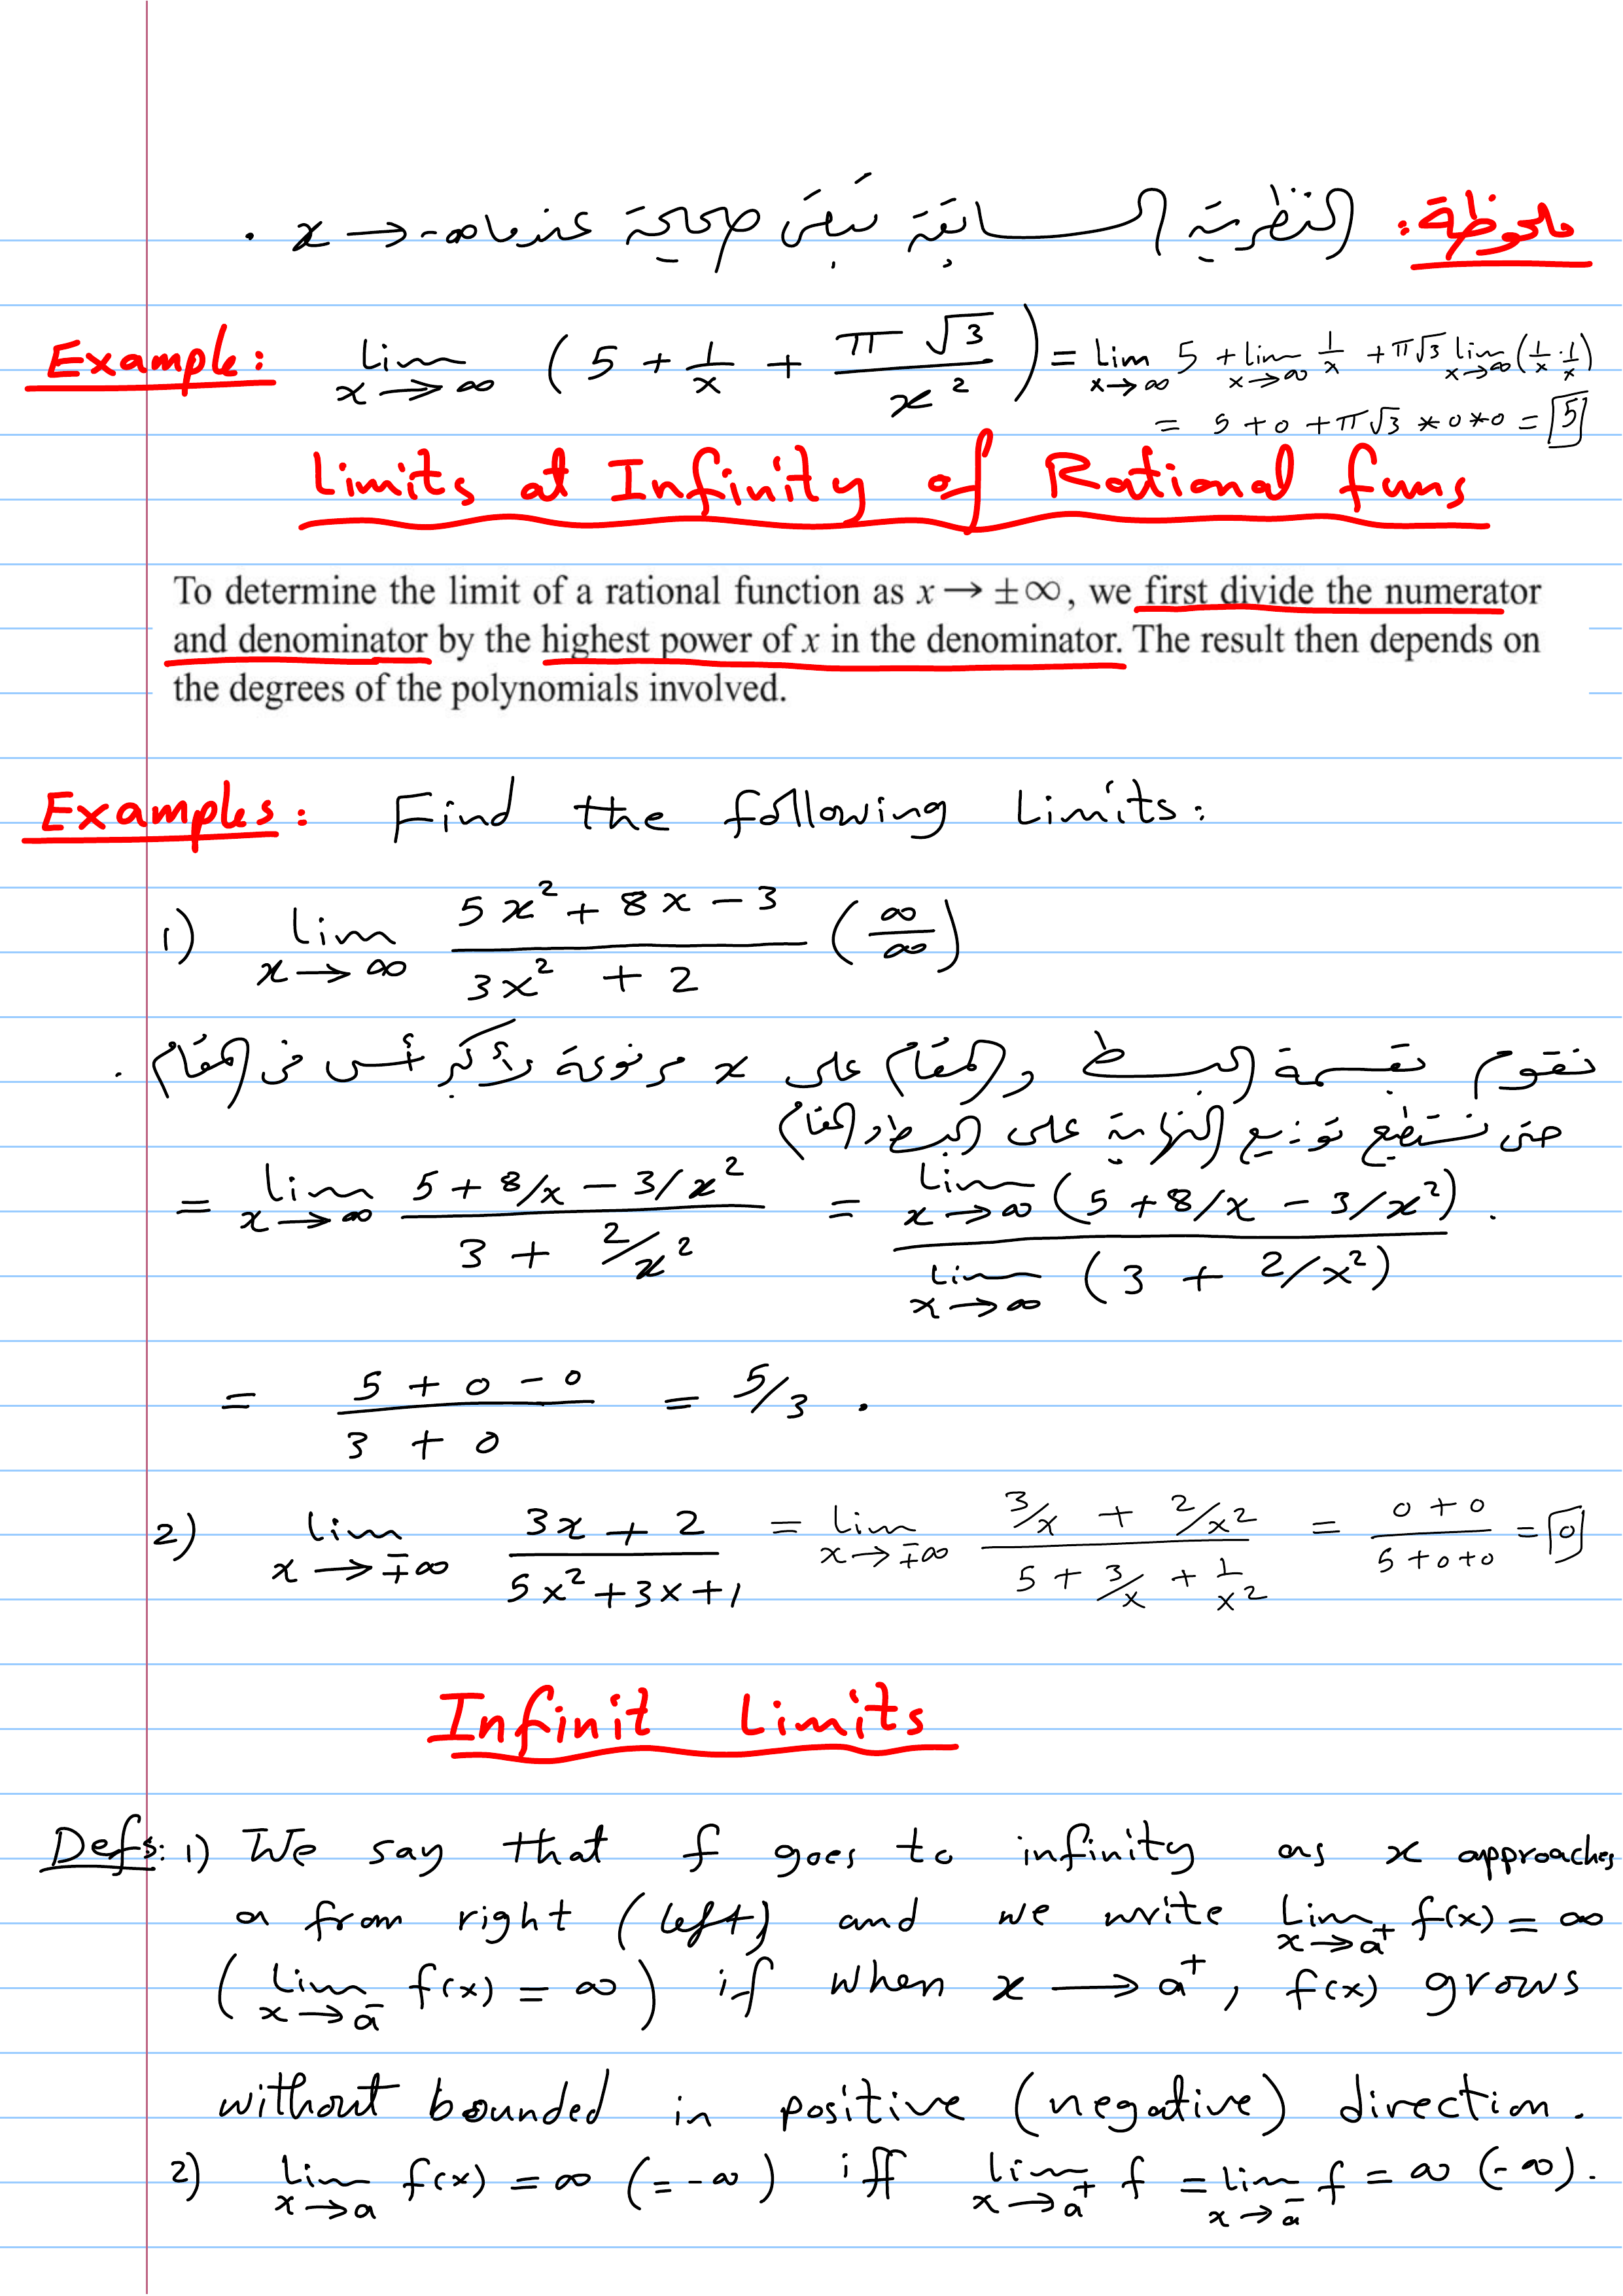 ملحوظة: النظرية السابقة تبقى صحيحة عندما x → -∞ .
Example: lim x→∞ (5 + 1/x + π√3/x²) = lim x→∞ 5 + lim x→∞ 1/x + π√3 lim x→∞ (1/x · 1/x)
= 5 + 0 + π√3 * 0 * 0 = 5
Limits at Infinity of Rational funs
To determine the limit of a rational function as x → ±∞, we first divide the numerator
and denominator by the highest power of x in the denominator. The result then depends on
the degrees of the polynomials involved.
Examples: Find the following Limits:
1) lim x→∞ (5x² + 8x - 3)/(3x² + 2) (∞/∞)
نقوم بقسمة البسط والمقام على x مرفوعة لأكبر أس فى المقام .
حتى نستطيع توزيع النهاية على البسط والمقام
= lim x→∞ (5 + 8/x - 3/x²)/(3 + 2/x²) = lim x→∞ (5 + 8/x - 3/x²) / lim x→∞ (3 + 2/x²) .
= (5 + 0 - 0)/(3 + 0) = 5/3 .
2) lim x→∓∞ (3x + 2)/(5x² + 3x + 1) = lim x→∓∞ (3/x + 2/x²)/(5 + 3/x + 1/x²) = (0 + 0)/(5 + 0 + 0) = 0
Infinit Limits
Defs: 1) We say that f goes to infinity as x approaches
a from right (left) and we write lim x→a⁺ f(x) = ∞
(lim x→a⁻ f(x) = ∞) if when x → a⁺, f(x) grows
without bounded in positive (negative) direction.
2) lim x→a f(x) = ∞ (= -∞) iff lim x→a⁺ f = lim x→a⁻ f = ∞ (-∞).